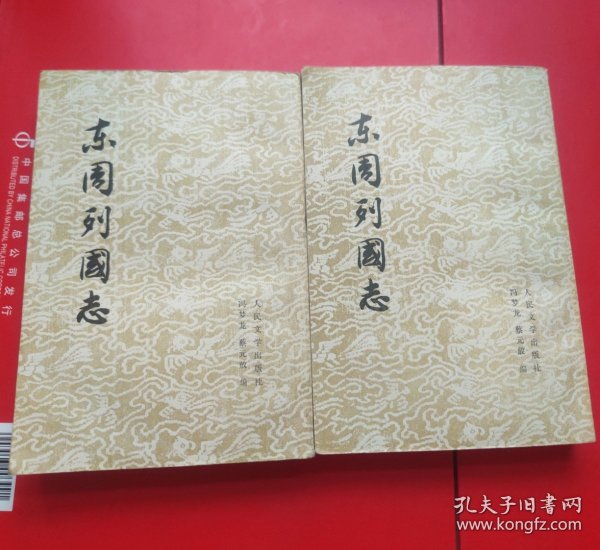 东周列國志
人民文学出版社
冯梦龙 蔡元放 编
东周列國志
人民文学出版社
冯梦龙 蔡元放 编
中国集邮总公司发行
DISTRIBUTED BY CHINA NATIONAL PHILATELIC
孔夫子旧书网
www.kongfz.com